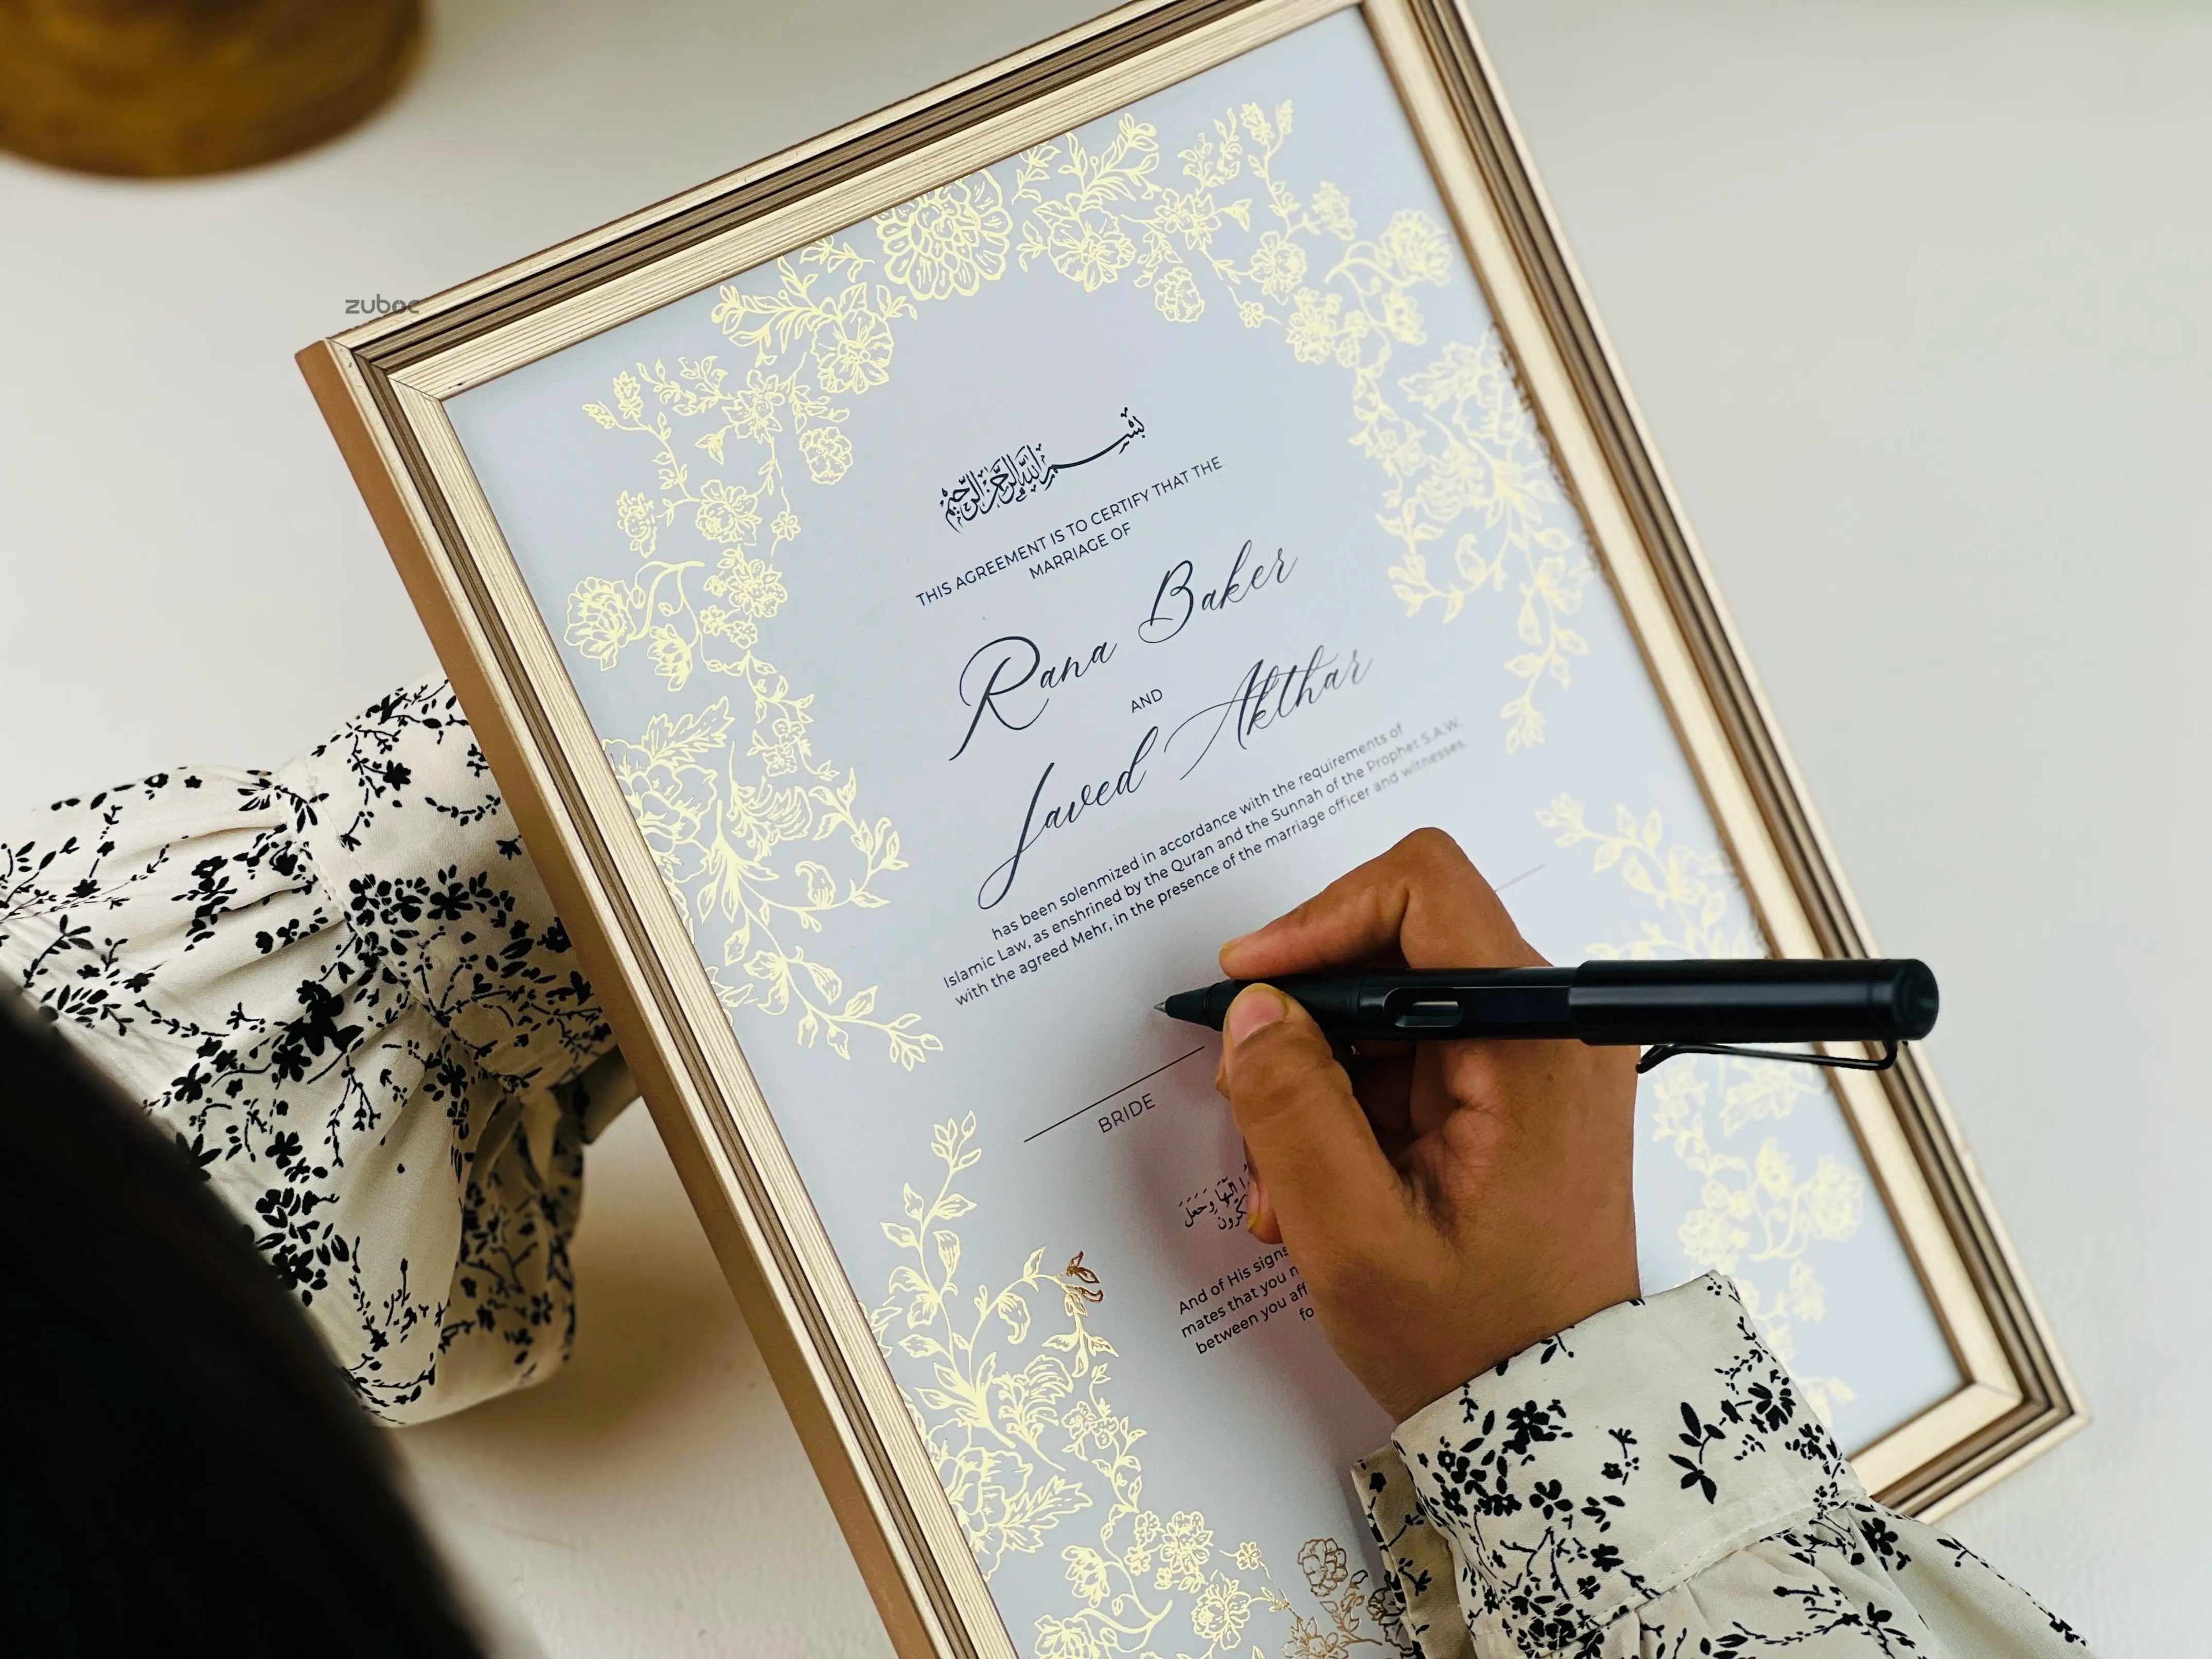 zuboc
بِسْمِ اللهِ الرَّحْمٰنِ الرَّحِيْمِ
THIS AGREEMENT IS TO CERTIFY THAT THE
MARRIAGE OF
Rana Baker
AND
Javed Akthar
has been solenmized in accordance with the requirements of
Islamic Law, as enshrined by the Quran and the Sunnah of the Prophet S.A.W,
with the agreed Mehr, in the presence of the marriage officer and witnesses.
BRIDE
إِلَيْهَا وَجَعَلَ
And of His signs
mates that you
between you